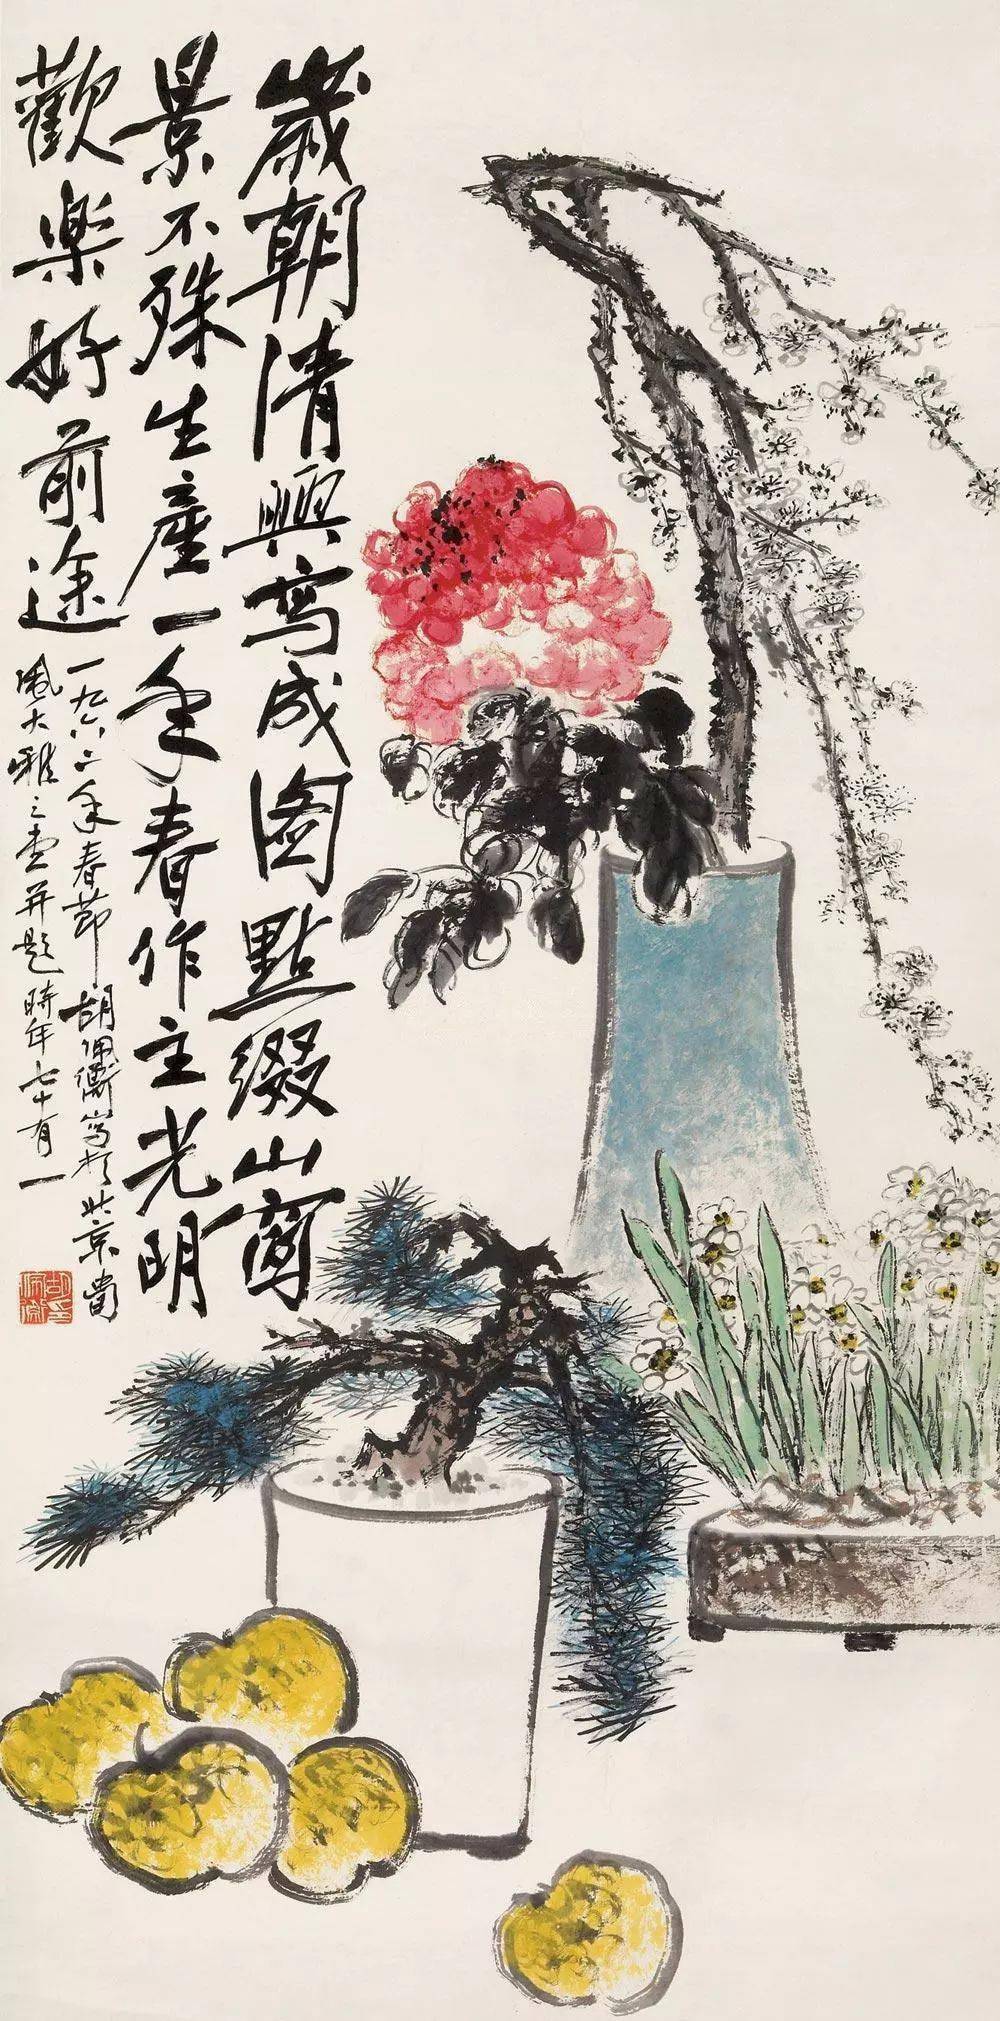 歲朝清興寫成图點綴山窗
景不殊生產一年春作主光明
歡樂好前途
一九六二年春節胡佩衡寫於北京
風大雅之堂并題時年七十有一
胡佩衡印